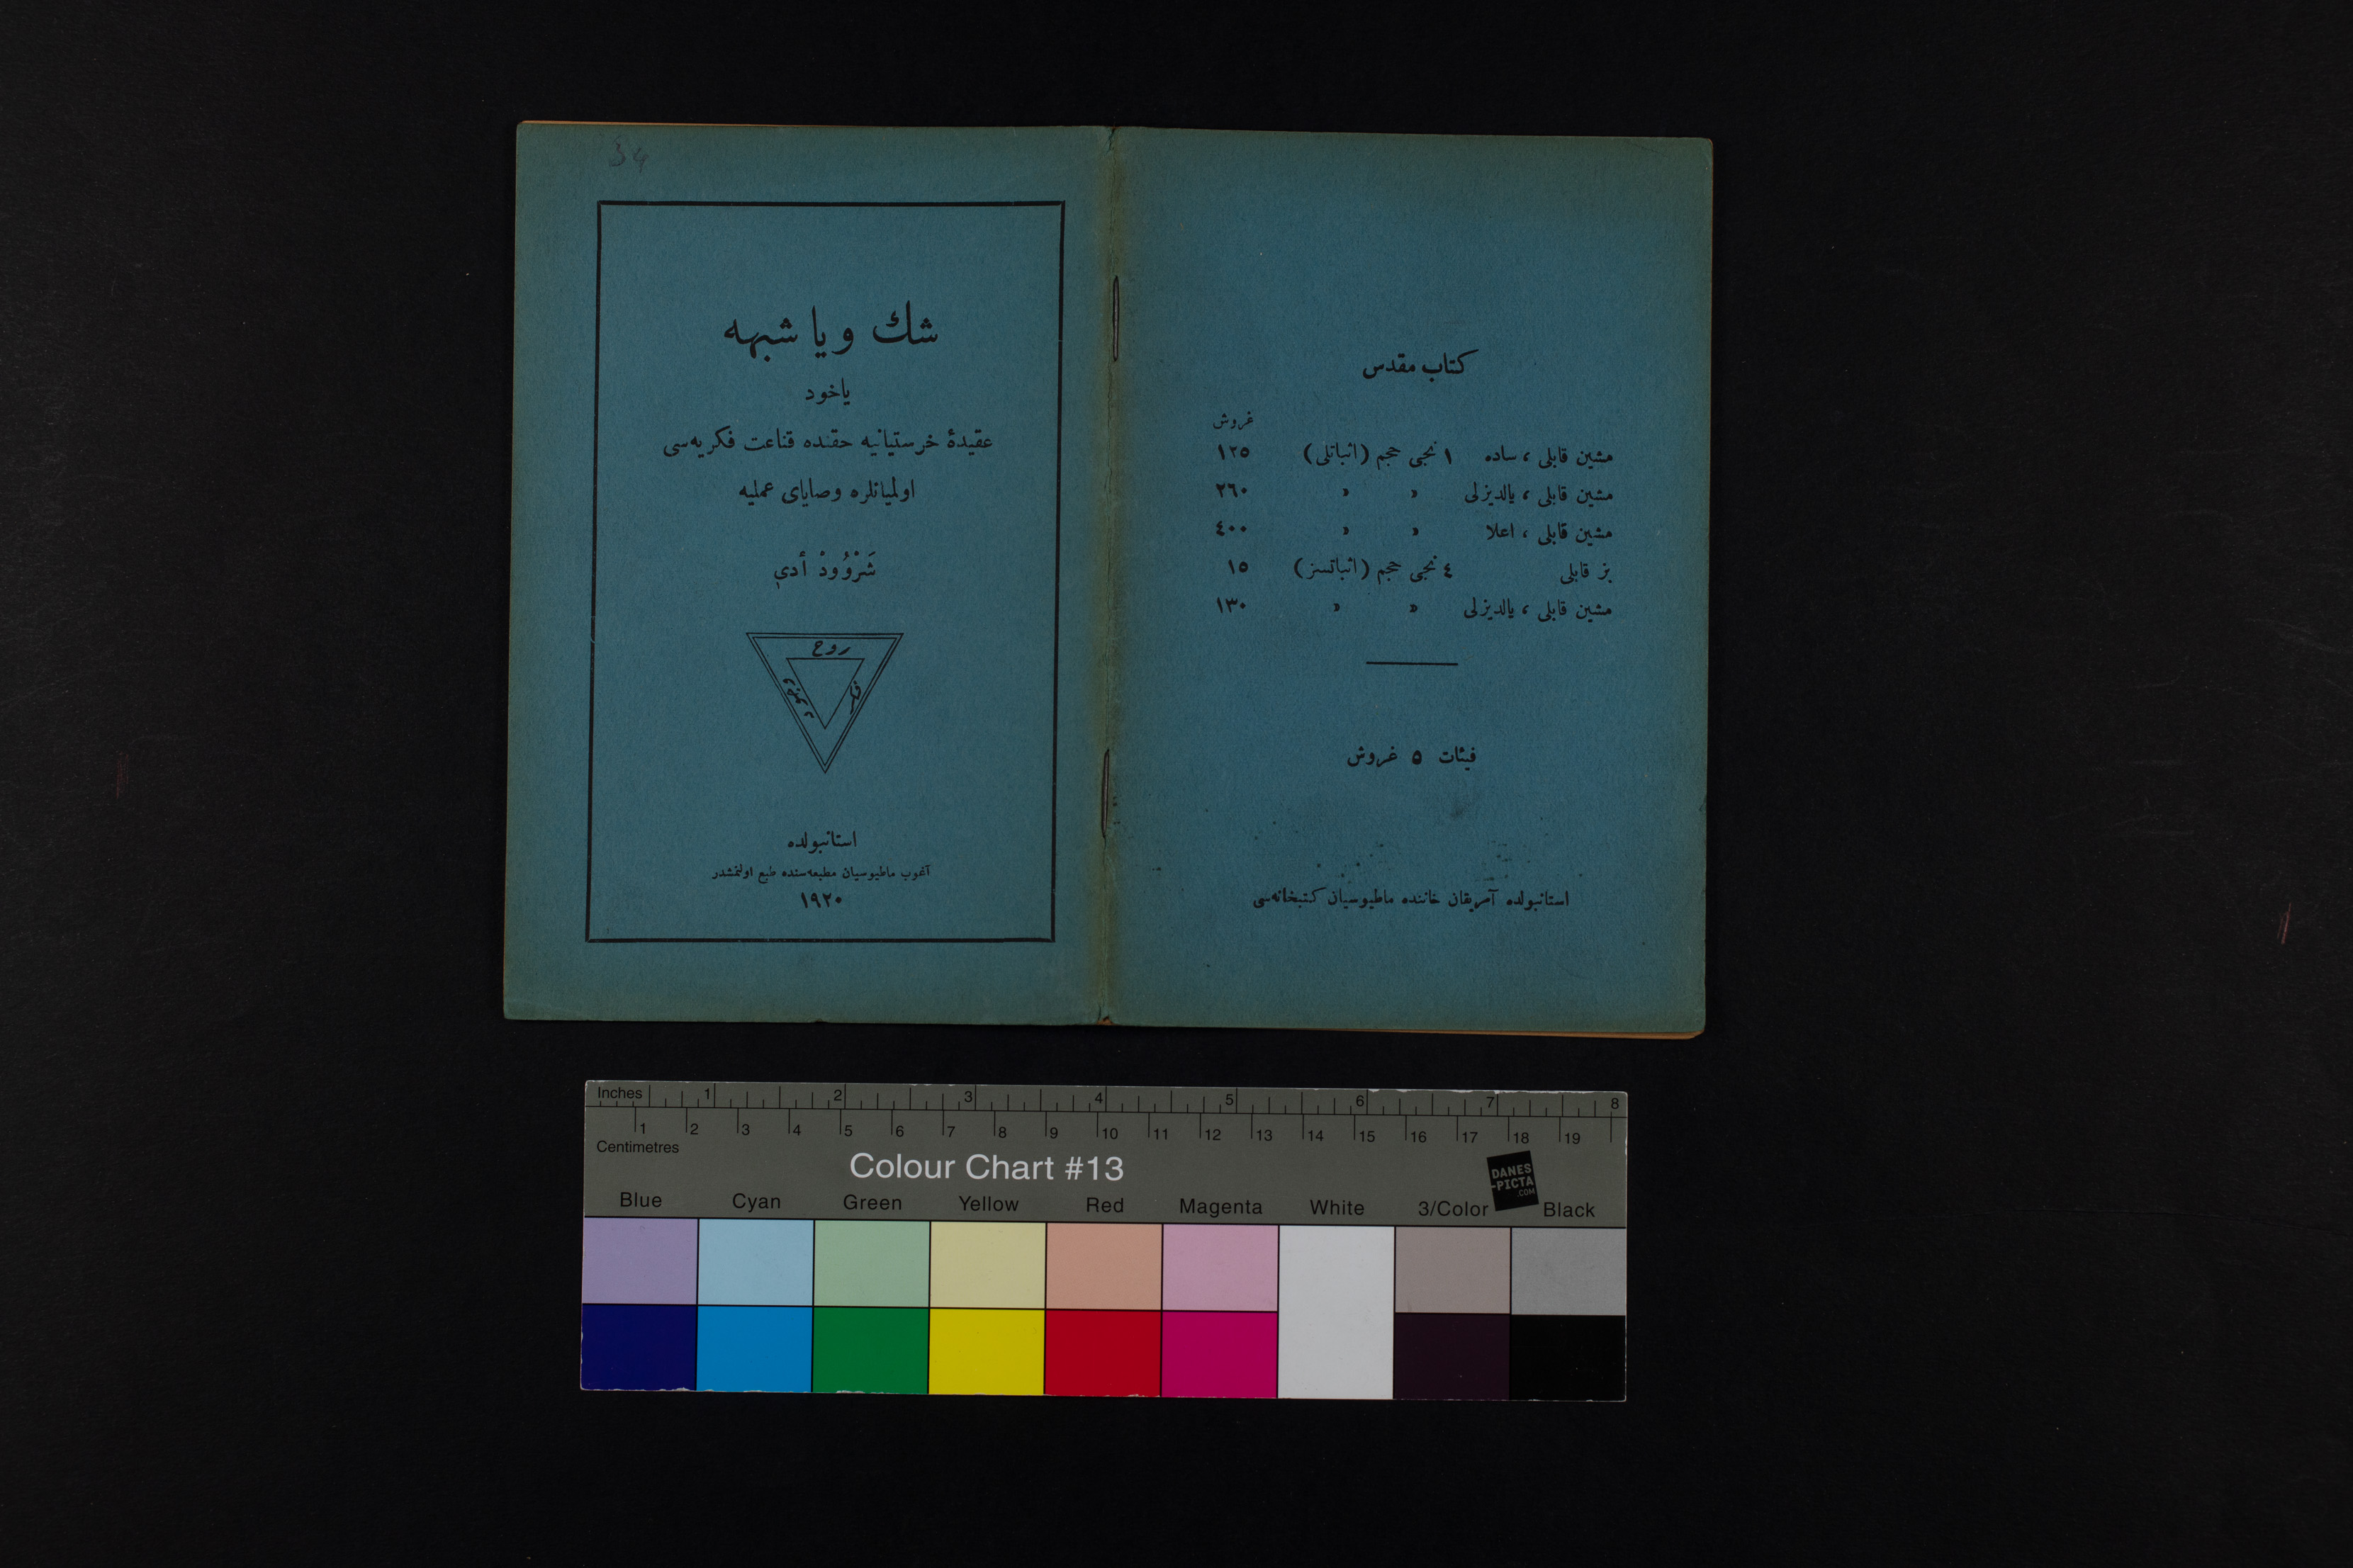 34
شك ويا شبهه
ياخود
عقيدهٔ خرستيانيه حقنده قناعت فكريه‌سى
اولميانلره وصاياى عمليه
شَرْوُودْ أدي
روح
وجود
فكر
استانبولده
آغوب ماطيوسيان مطبعه‌سنده طبع اولنمشدر
١٩٢٠
كتاب مقدس
غروش
مشين قابلى ، ساده ١ نجى حجم (اثباتلى) ١٢٥
مشين قابلى ، يالديزلى » » ٢٦٠
مشين قابلى ، اعلا » » ٤٠٠
بز قابلى ٤ نجى حجم (اثباتسز) ١٥
مشين قابلى ، يالديزلى » » ١٣٠
فيئات ٥ غروش
استانبولده آمريقان خاننده ماطيوسيان كتبخانه‌سى
Inches 1 2 3 4 5 6 7 8
1 2 3 4 5 6 7 8 9 10 11 12 13 14 15 16 17 18 19
Centimetres
Colour Chart #13
DANES
-PICTA
.COM
Blue Cyan Green Yellow Red Magenta White 3/Color Black